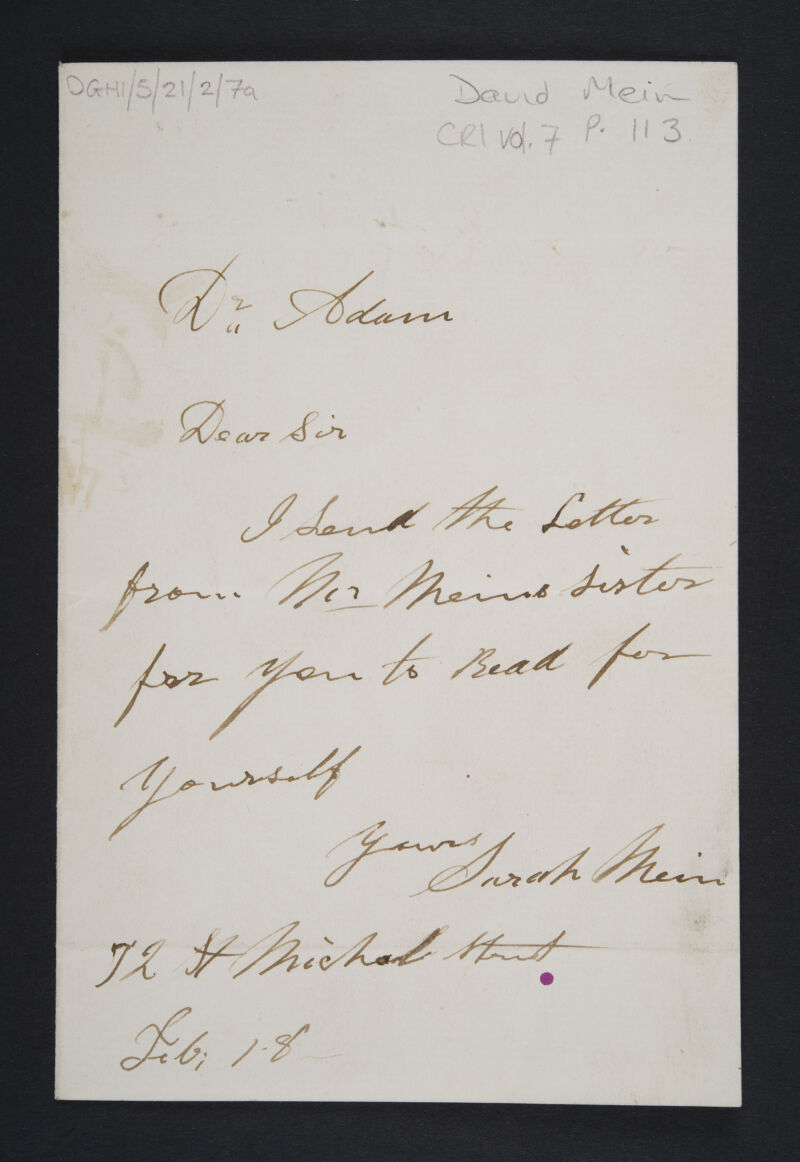 DGH1/5/21/2/7a
David Mein
CRI Vol. 7 P. 113.
Dr. Adam
Dear Sir
I Send the Letter
from Mr Meins Sister
for you to Read for
Yourself
Yours
Sarah Mein
72 St Michal Street
Feb; 18